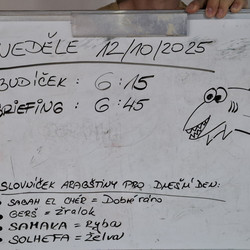 NEDĚLE 12/10/2025
BUDÍČEK : 6:15
BRIEFING : 6:45
SLOVNÍČEK ARABŠTINY PRO DNEŠNÍ DEN:
• SABAH EL CHÉR = Dobré ráno
• GERŠ = Žralok
• SAMAKA = Ryba
• SOLHEFA = Želva